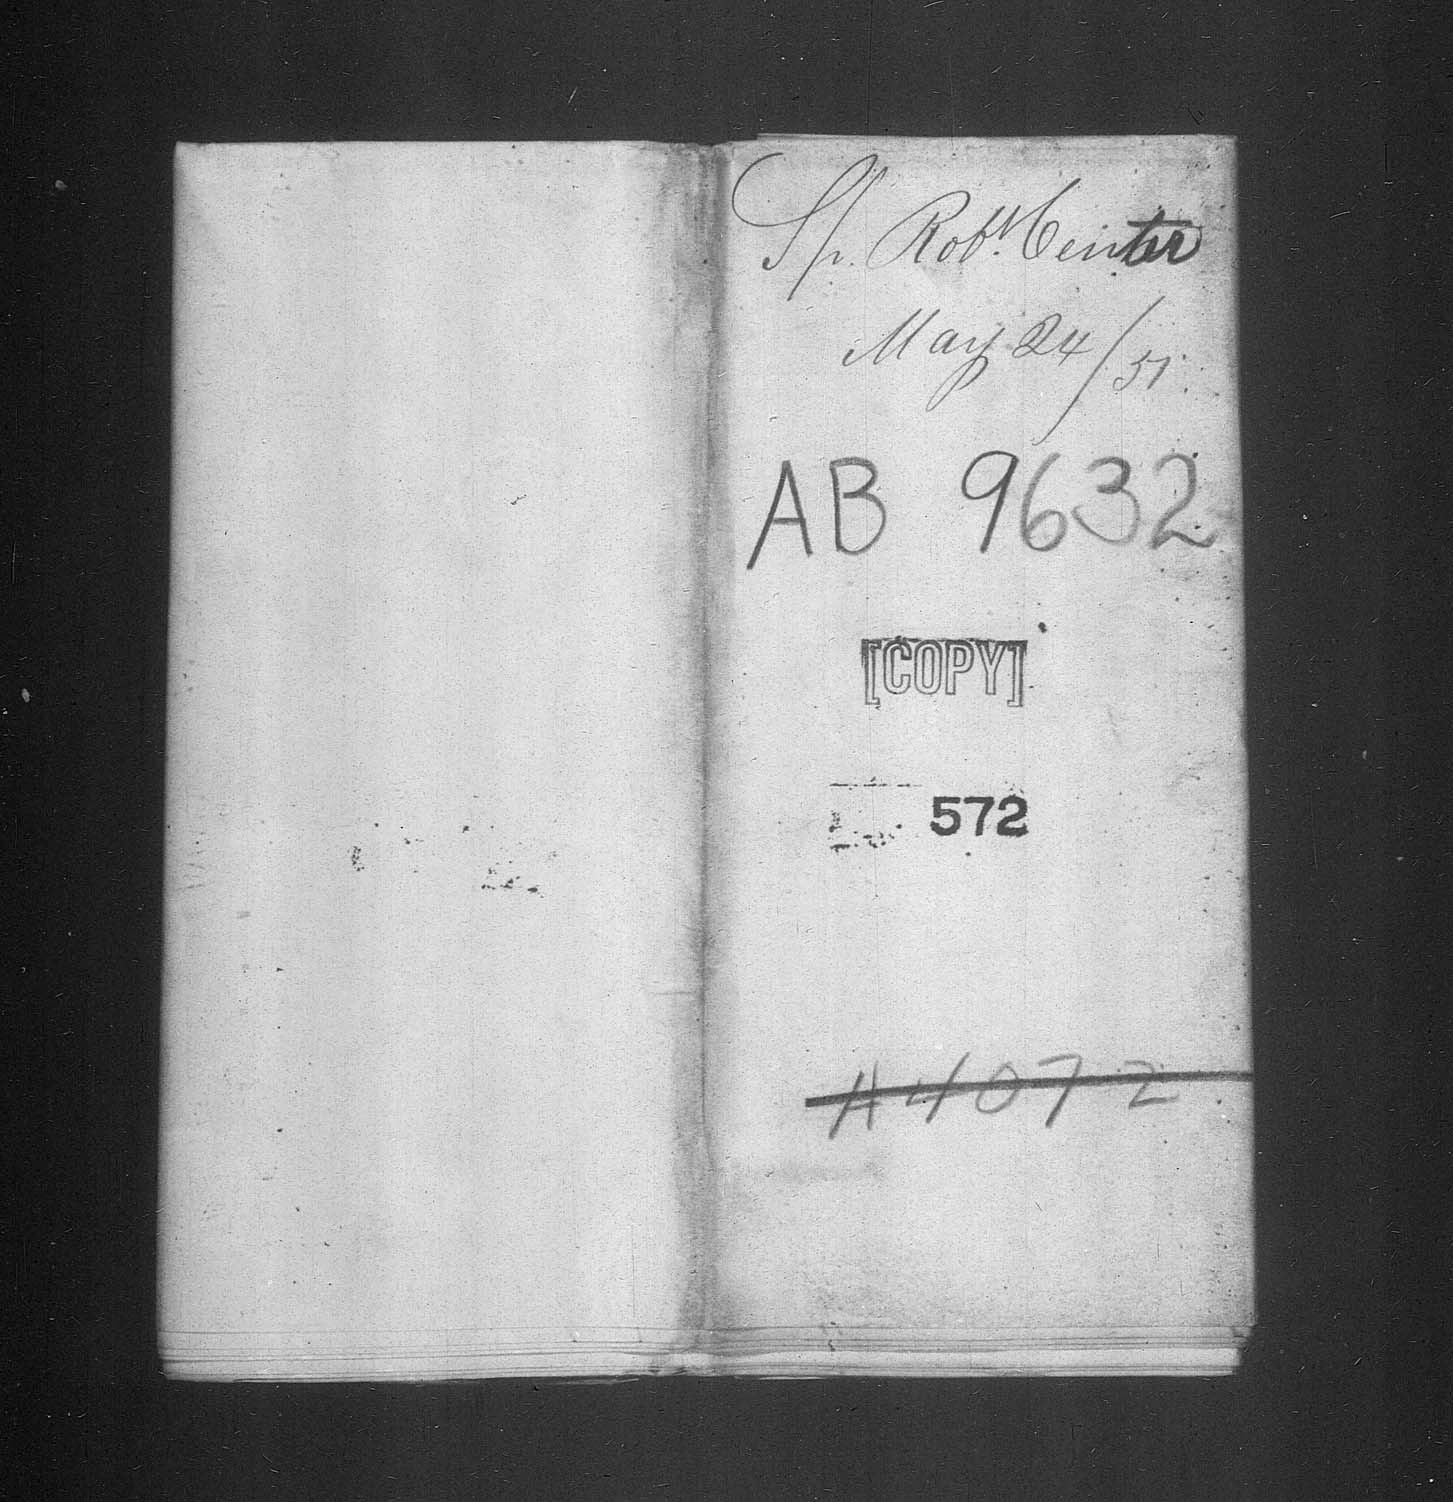 Sp. Robt. Center
May 24/51.
AB 9632
[COPY]
572
# 4072